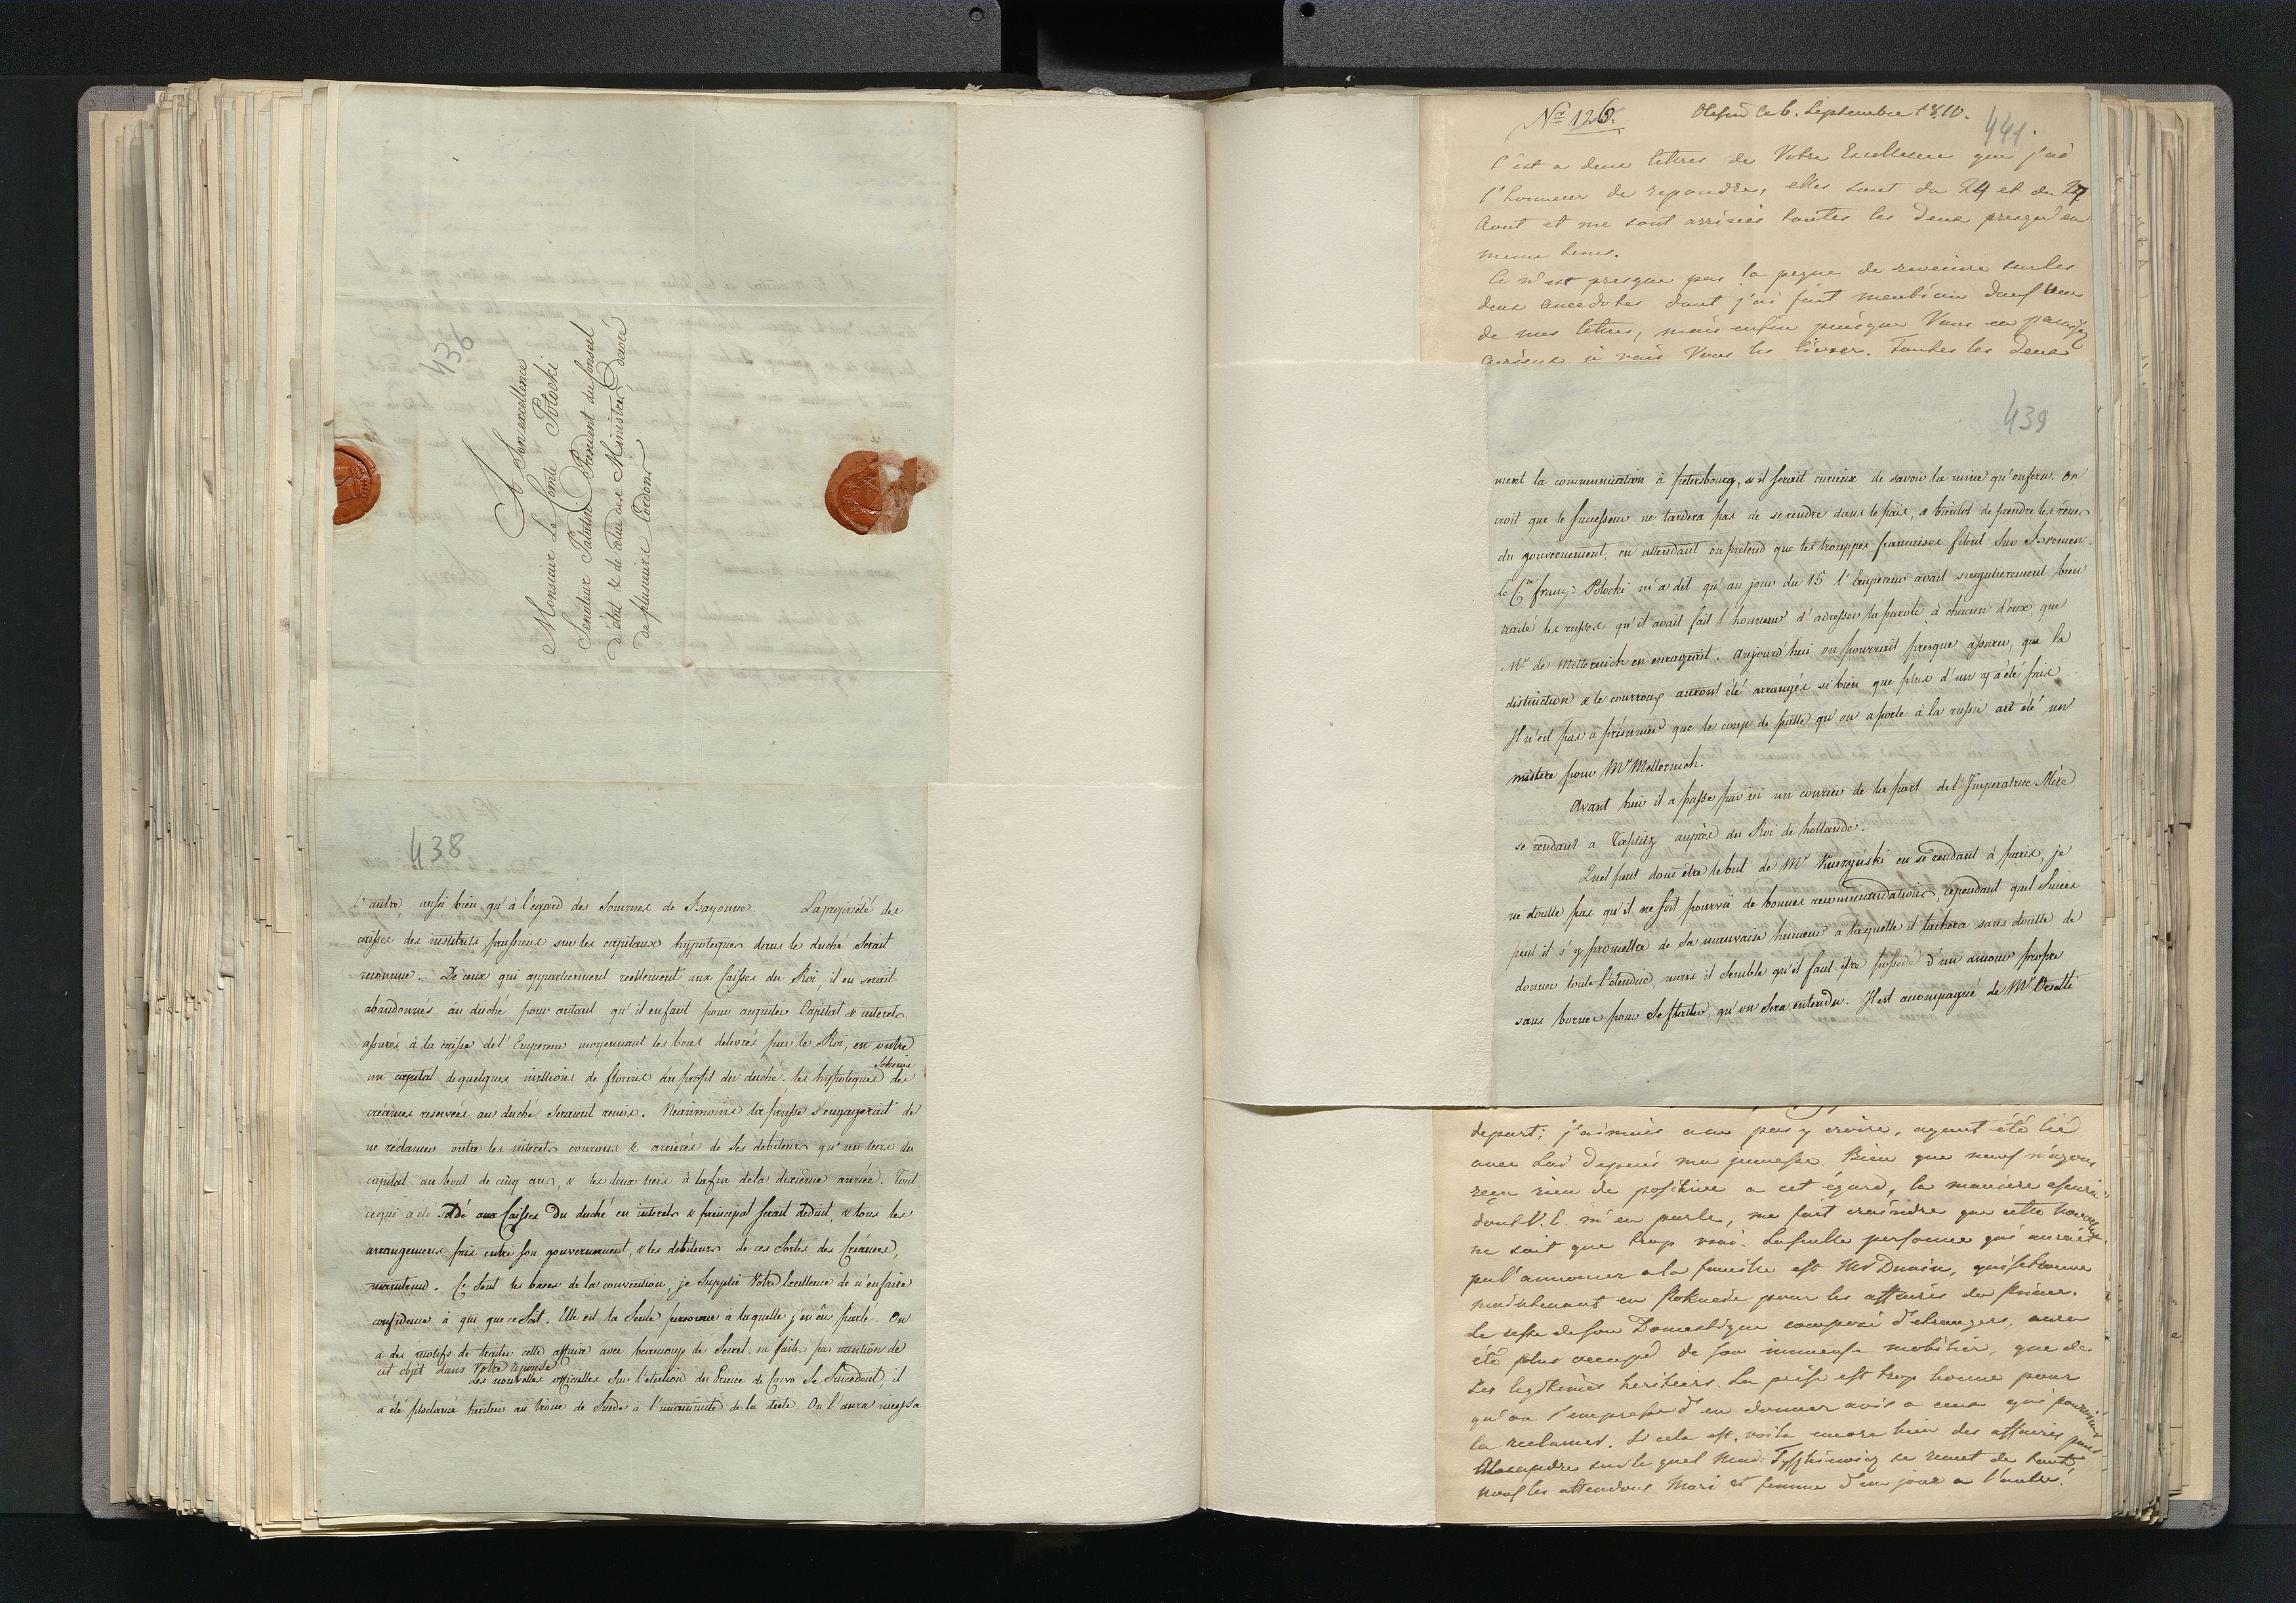 436
A
Son excellence
Monsieur Le Comte Potocki
Senateur Palatin Président du Conseil
d'état & de celui des Ministres, Décoré
de plusieurs Cordons
438
l'autre, aussi bien qu'à l'egard des Sommes de Bayonne. La propriété des
caisses des instituts prussiens sur les capitaux hypotequés dans le duché serait
reconnue. De ceux qui appartiennent reellement aux Caisses du Roi, il en serait
abandonnés au duché pour autant qu'il en faut pour acquiter Capital & interets
assurés à la caisse de l'Empereur moyennant les bons délivrés par le Roi, en outre
un capital de quelques millions de florins au profit du duché. les hypoteques des
créances reservées au duché seraient remis. Néanmoins la prusse s'engagerait de
ne réclamer outre les interets courans & arrierés de ses debiteurs qu'un tiers du
capital au bout de cinq ans, & les deux tiers à la fin de la dixième année. Tout
ce qui a été soldé aux Caisses du duché en interets & principal serait déduit, & tous les
arrangemens pris entre son gouvernement, & les debiteurs de ces sortes des Créances,
maintenus. Ce sont les bases de la convention, je Supplie Votre Excellence de n'en faire
confidence à qui que ce soit. Elle est la Seule personne à laquelle j'en ai parlé. On
a des motifs de traiter cette affaire avec beaucoup de Secret. ne faites pas mention de
cet objet dans Votre reponse
Les nouvelles officielles Sur l'election du Prince de Corvo Se Succedent, il
a été proclamé heritier au trone de Suede à l'unanimité de la diete. On l'aura necessa
Nr. 126.
ce 6. Septembre 1810.
441.
C'est a deux lettres de Votre Excellence que j'ai
l'honneur de repondre, elles sont du 24 et du 27
Aout et me sont arrivées toutes les deux presqu'en
meme tems.
Ce n'est presque pas la peyne de revenir sur les
deux anecdotes dont j'ai fait mention dans une
de mes lettres, mais enfin puisque Vous en
curieux je vais Vous les livrer. Toutes les deux
439
ment la communication à petersbourg, & il serait curieux de savoir la mine qu'on fera. On
croit que le Successeur ne tardera pas de se rendre dans le païs, & bientot de prendre les rênes
du gouvernement, en attendant on pretend que les trouppes françaises filent Sur Bremen.
Le Cte franç: Potocki m'a dit qu'au jour du 15 l'Empereur avait singulierement bien
traité les russes qu'il avait fait l'honneur d'adresser la parole à chacun d'eux, que
Mr de Metternich en enrageait. Aujourd'hui on pourrait presque assurer, que la
distinction & le courroux auront été arrangés si bien que plus d'un y a été pris
Il n'est pas à présumer que le coup de patte qu'on a porté à la russie ait été un
mistere pour Mr Metternich.
Avant hier il a passé par ici un courrier de la part de l'Imperatrice Mère
se rendant a Toeplitz auprès du Roi de hollande.
Quel peut donc être le but de Mr Kuczyński en se rendant à paris, je
ne doutte pas qu'il ne soit pourvu de bonnes recommandations, cependant quel Succes
peut il s'y promettre de Sa mauvaise humeur a laquelle il tachera sans doutte de
donner toute l'étendue, mais il semble qu'il faut être possedé d'un amour propre
sans bornes pour Se flatter, qu'on Sera entendu. Il est accompagné de Mr Orsetti
depart; j'aimais a ne pas y croire, ayant été lié
avec Lui depuis ma jeunesse. Bien que nous n'ayons
reçu rien de positive a cet égard, la maniere
dont V. E. m'en parle, me fait craindre que cette nouvelle
ne soit que trop vrai. La seulle personne qui aurait
pu l'annoncer a la famille est Mr Dunin, qui se trouve
maintenant en pour les affaires du Prince.
Le reste de son Domestique composé d'étrangers, aura
été plus occupé de son immense mobilier, que de
Les legitimes heritiers. La prise est trop bonne pour
qu'on s'empresse d'en donner avis a ceux qui
la reclamer. Si cela est, voila encore bien des affaires pour
Alexandre sur le quel Mad: Tyszkiewicz se remet de tout,
nous les attendons Mari et femme d'un jour a l'autre.